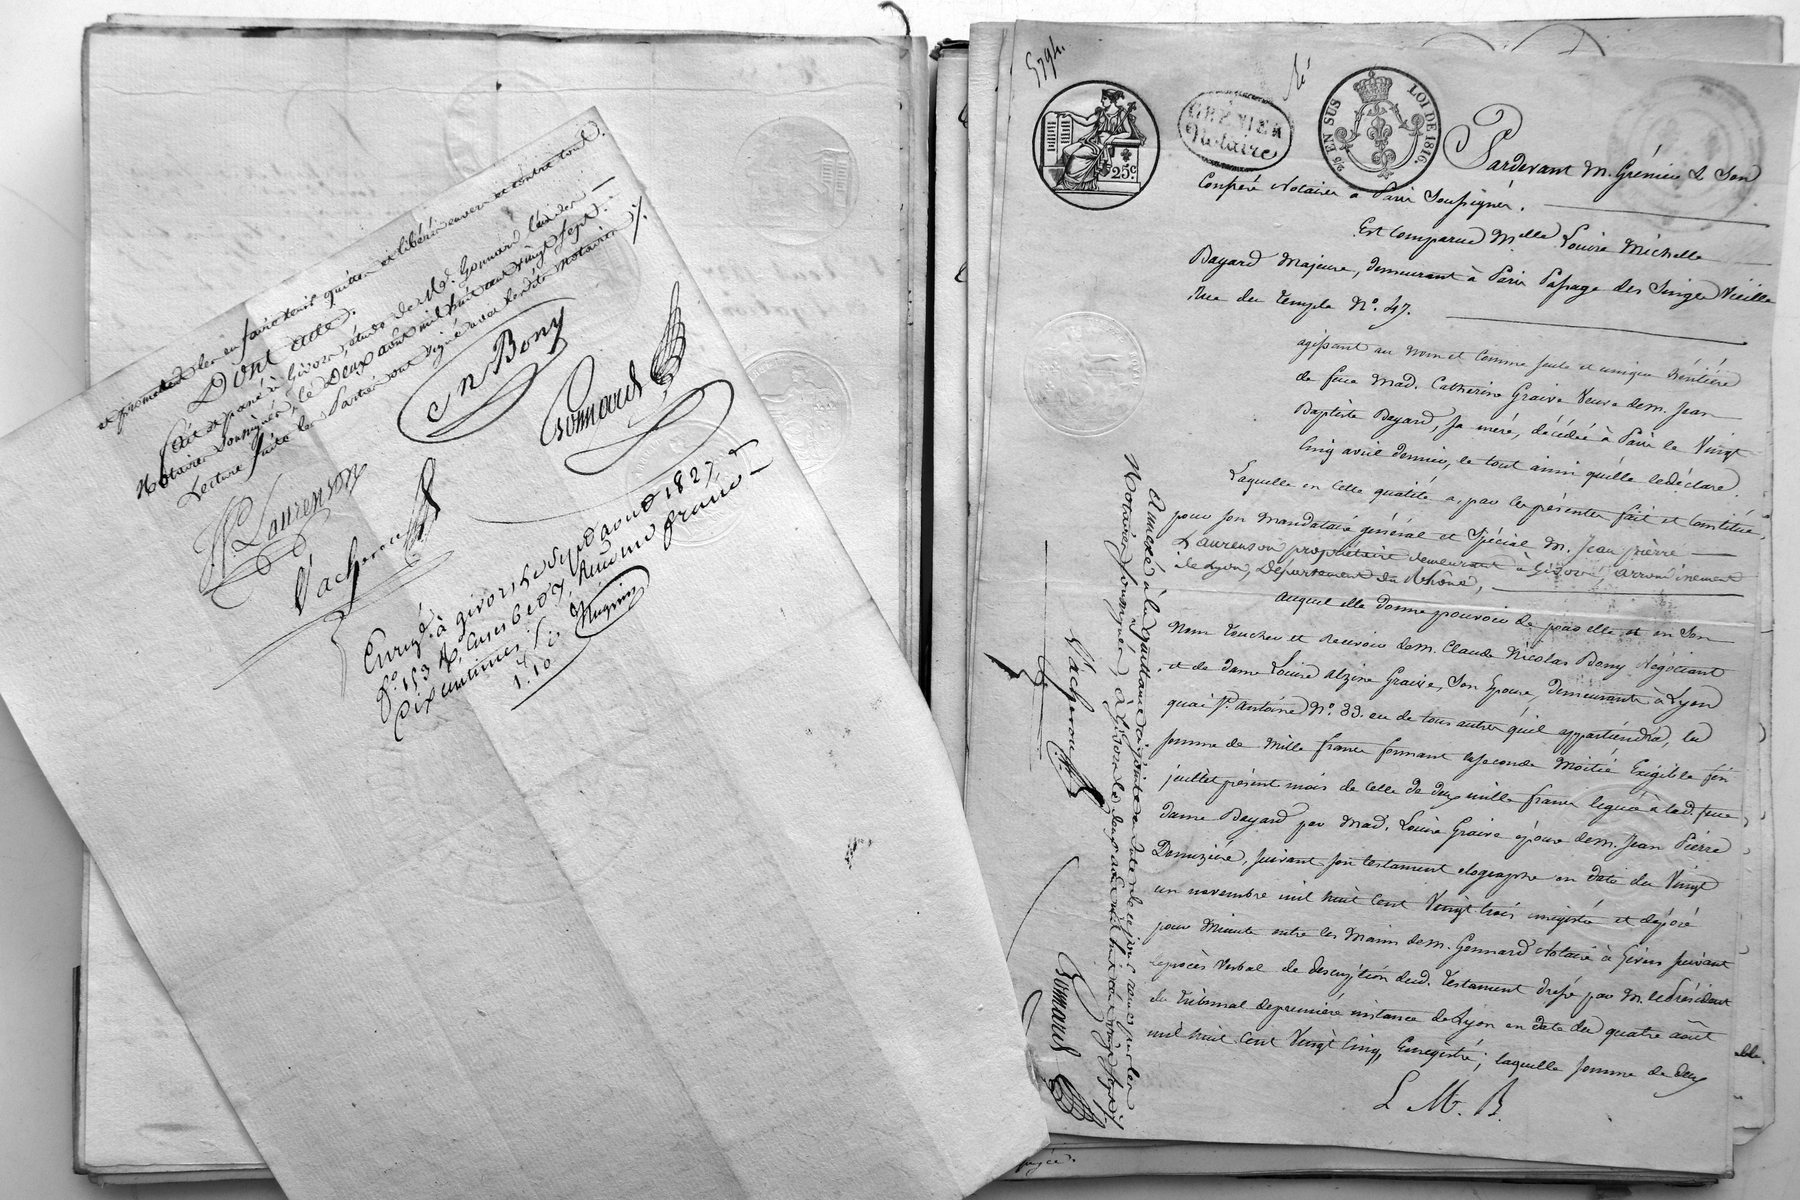 et promettent les en faire tenir quittes et libérés envers et contre tous.
Dont acte.
fait et passé à Givors, étude de Md. Gonnard l'un des
Notaires soussignés, le Deux août mil huit cent vingt sept.
Lecture faite les Parties ont signé avec lesdits Notaires ./.
n Bony
Gonnard
Laurenson
Vacheron
Enregé. à givors le sept août 1827
fo. 153 Vo. Cases 6 et 7. Reçu un franc
dix centimes
1. 10
GRÉNIER
Notaire
25c
25 EN SUS
LOI DE 1816.
Pardevant M. Grénier & Son
Confrère Notaires à Paris Soussignés.
Est Comparue Melle Louise Michelle
Bayard Majeure, demeurant à Paris Passage des Singes Vieille
Rue du Temple No. 47.
agissant au nom et Comme Seule et unique héritière
de feue Mad. Catherine Graive Veuve de M. Jean
Baptiste Bayard, sa mère, décédée à Paris le Vingt
Cinq avril dernier, le tout ainsi qu'elle le déclare.
Laquelle en cette qualité a, par ces présentes fait et Constitué,
pour son mandataire général et Spécial M. Jean pierre
Laurenson propriétaire demeurant à Givors, arrondissement
de Lyon, Département du Rhône,
auquel elle donne pouvoir de pour elle et en Son
Nom Toucher et Recevoir de M. Claude Nicolas Bony Négociant
et de Dame Louise Alzine Graive, Son Epouse, demeurants à Lyon
quai St. Antoine No. 33. ou de tous autres qu'il appartiendra, la
Somme de Mille francs formant la Seconde Moitié Exigible fin
juillet présent mois de celle de deux mille francs léguée à lad. feue
Dame Bayard par Mad. Louise Graive épouse de M. Jean Pierre
Demizière, Suivant Son testament olographe en date du Vingt
un novembre mil huit Cent Vingt trois enregistré et déposé
pour Minute entre les Mains de M. Gonnard Notaire à Givors suivant
le procès Verbal de description dud. Testament dressé par M. le Président
du tribunal de première instance de Lyon en date du quatre août
mil huit Cent Vingt Cinq, Enregistré; laquelle Somme de deux
L. M. B.
Annexé à la quittance ci jointe
Notaires soussignés, à Givors le deux août mil huit cent vingt sept
Vacheron
Gonnard